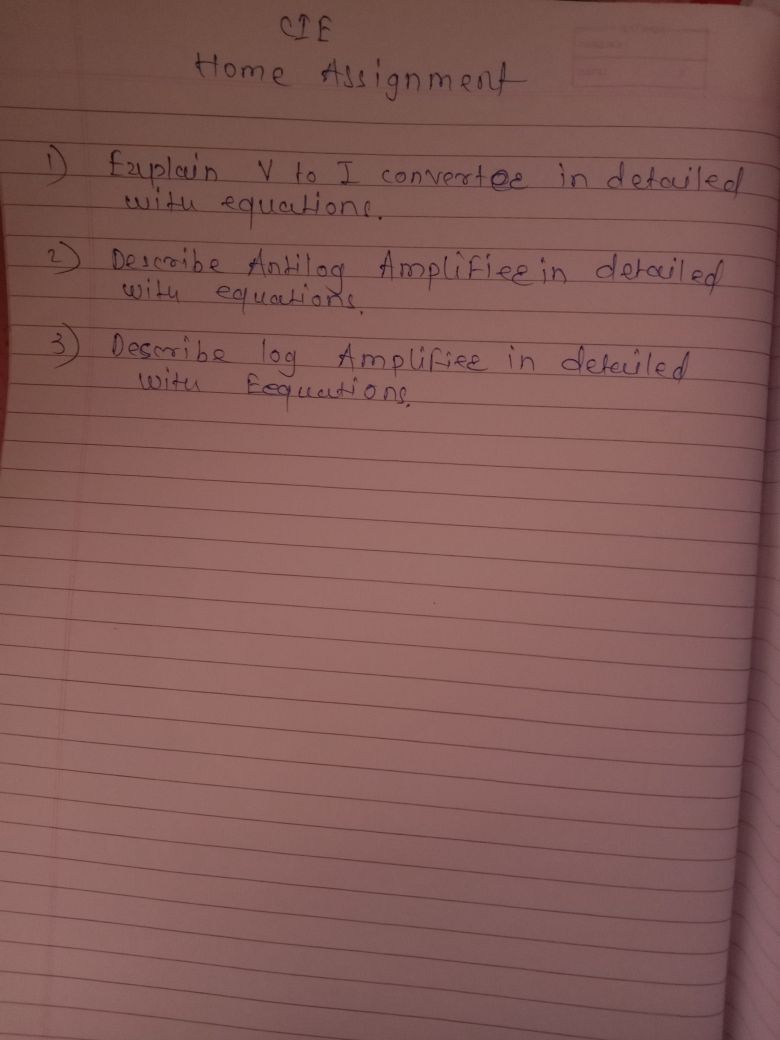 CIE
Home Assignment
1) Explain V to I convertee in detailed
with equations.
2) Describe Antilog Amplifiee in detailed
with equations.
3) Describe log Amplifiee in detailed
with Eequations.